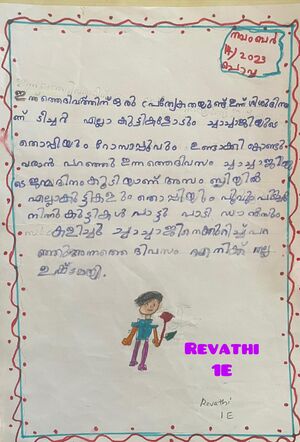 നവംബർ
14/2023
ചൊവ്വ
ഇന്നത്തെദിവസത്തിന് ഒരു പ്രത്യേകതയുണ്ട്
ടീച്ചർ എല്ലാ കുട്ടികളോടും ചാച്ചാജിയുടെ
തൊപ്പിയും റോസാപ്പൂവും ഉണ്ടാക്കി കൊണ്ടു
വരാൻ പറഞ്ഞു ഇന്നത്തെദിവസം ചാച്ചാജിയു
ടെ ജന്മദിനം കൂടിയാണ് അസംബ്ലിയിൽ
എല്ലാകുട്ടികളും തൊപ്പിയും പൂവും
നിന്ന് കുട്ടികൾ പാട്ട് പാടി ഡാൻസും
കളിച്ചു ചാച്ചാജിനെക്കുറിച്ച് പറ
ഞ്ഞു അന്നത്തെ ദിവസം എനിക്ക് നല്ല
ഇഷ്ടമായി.
REVATHI
1E
Revathi
1E